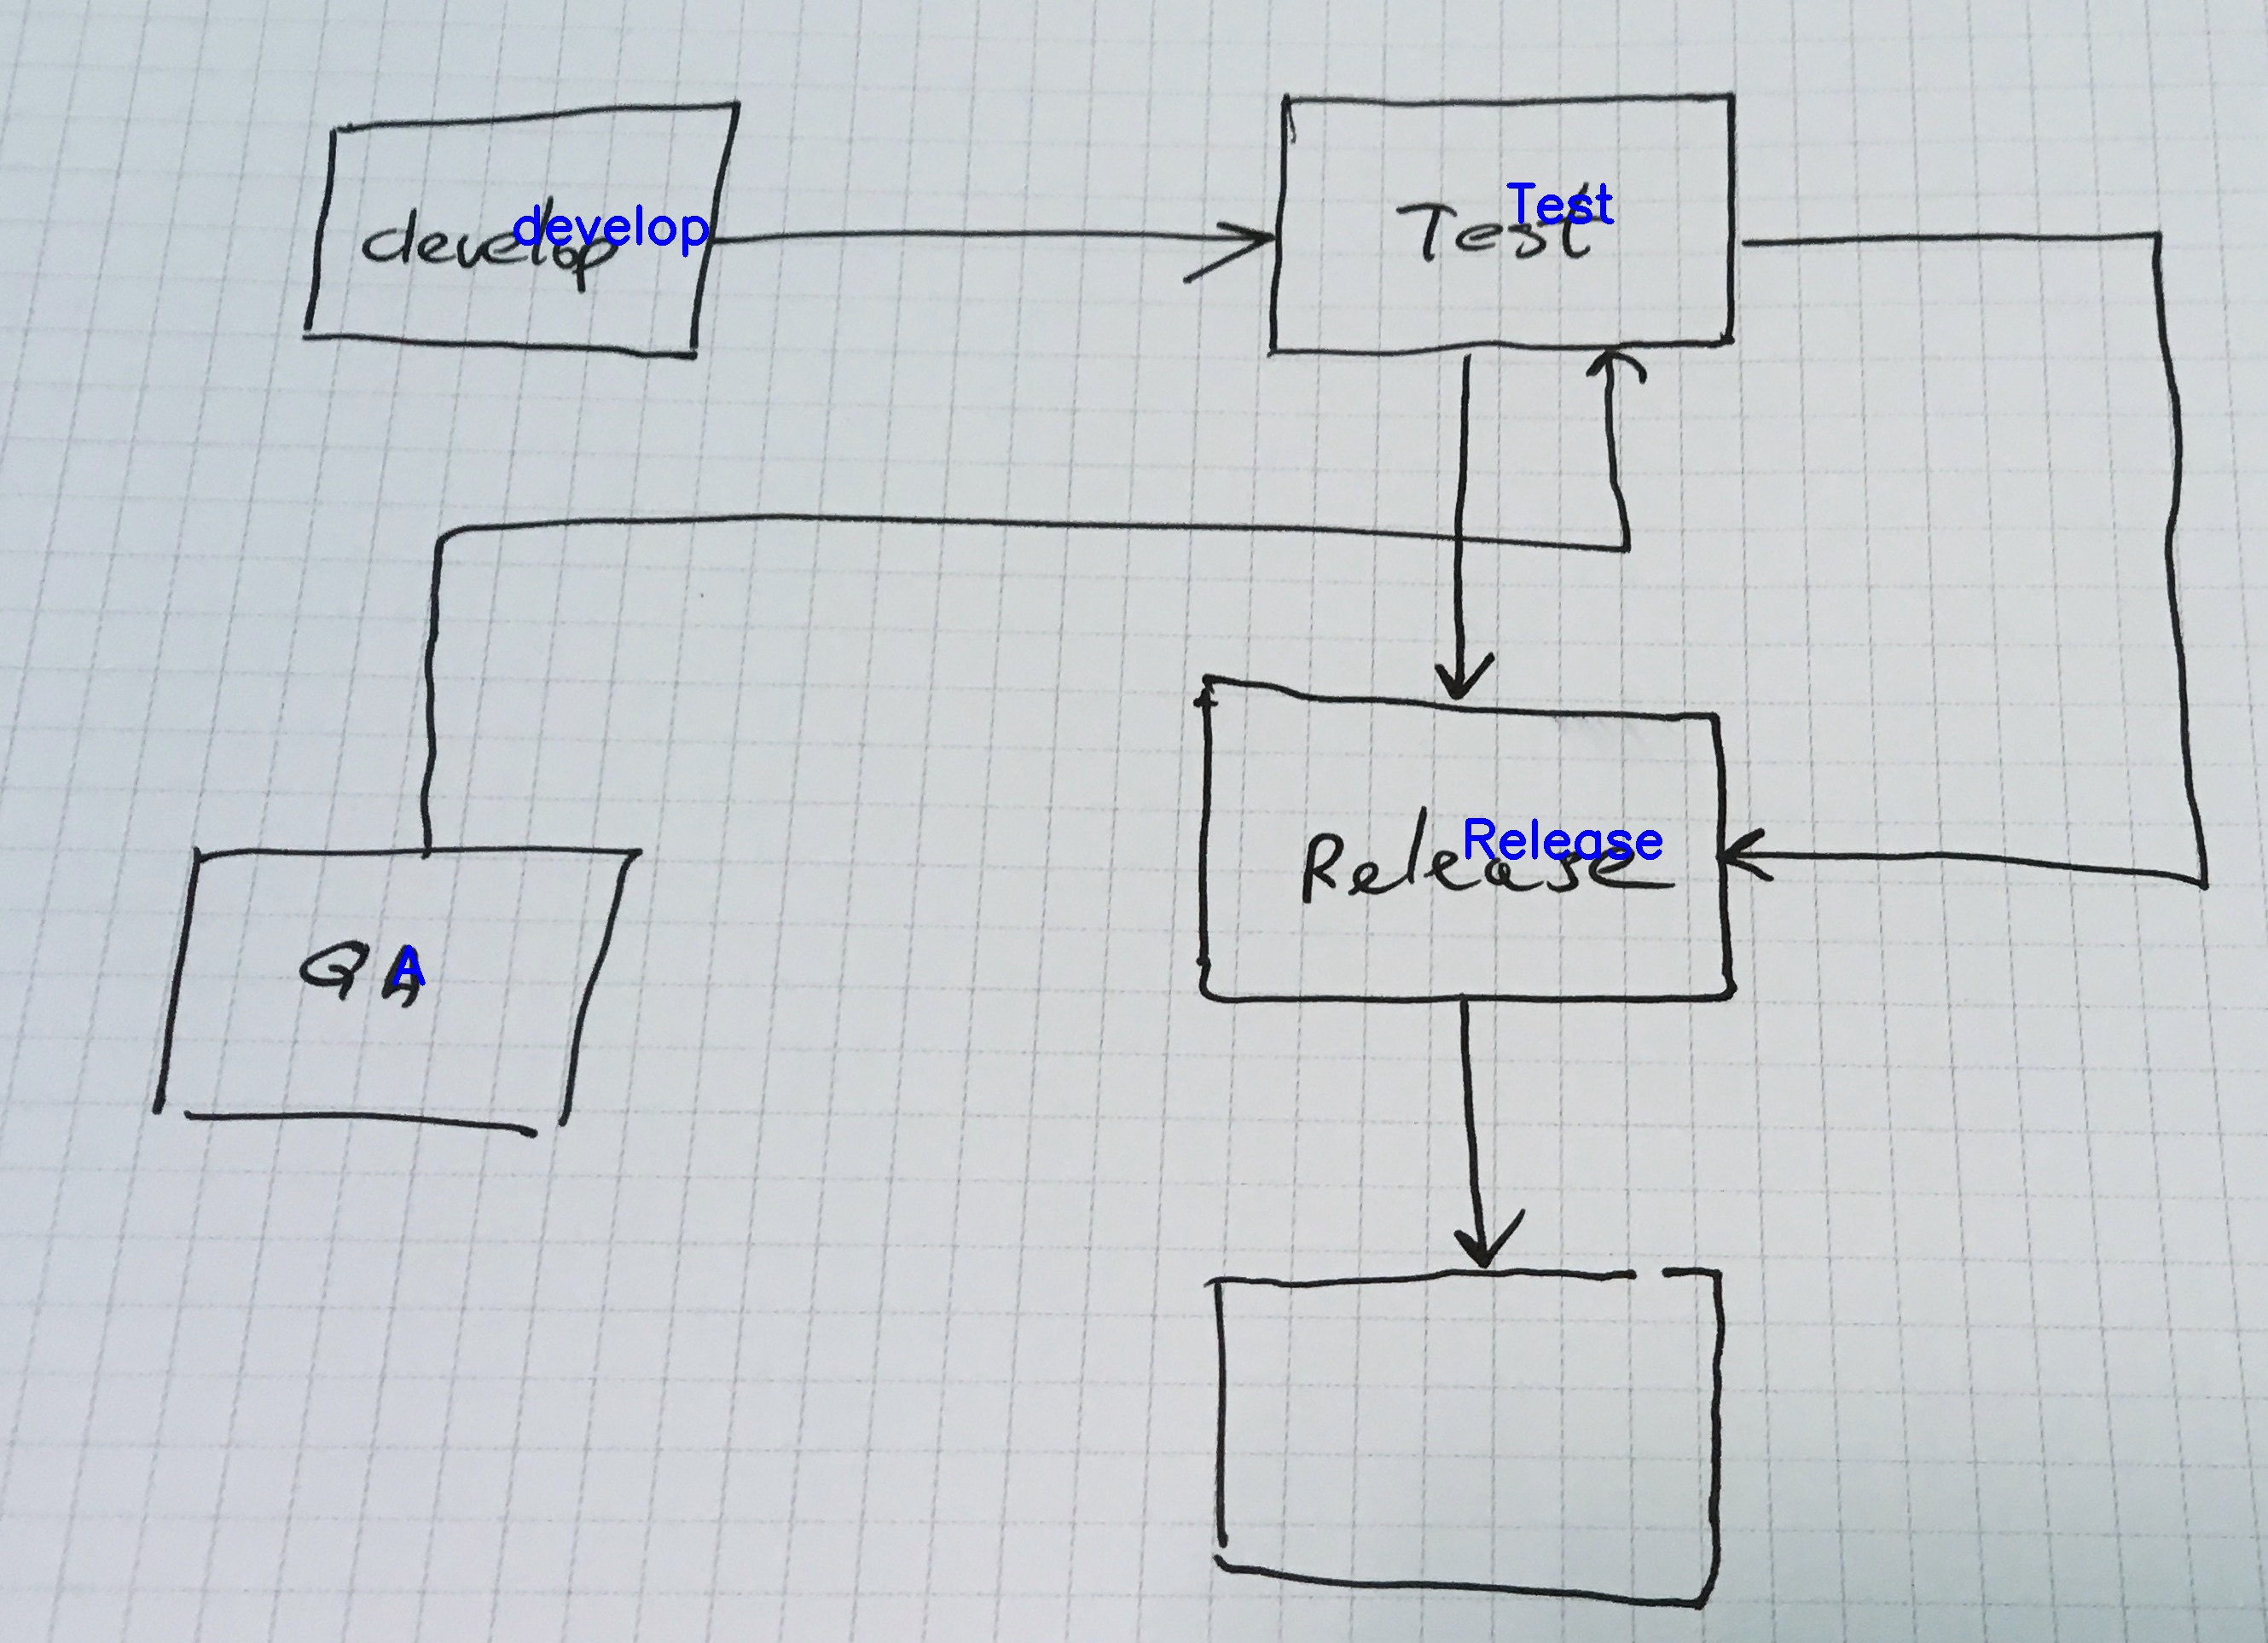 develop
develop
Test
Test
Release
Release
QA
A